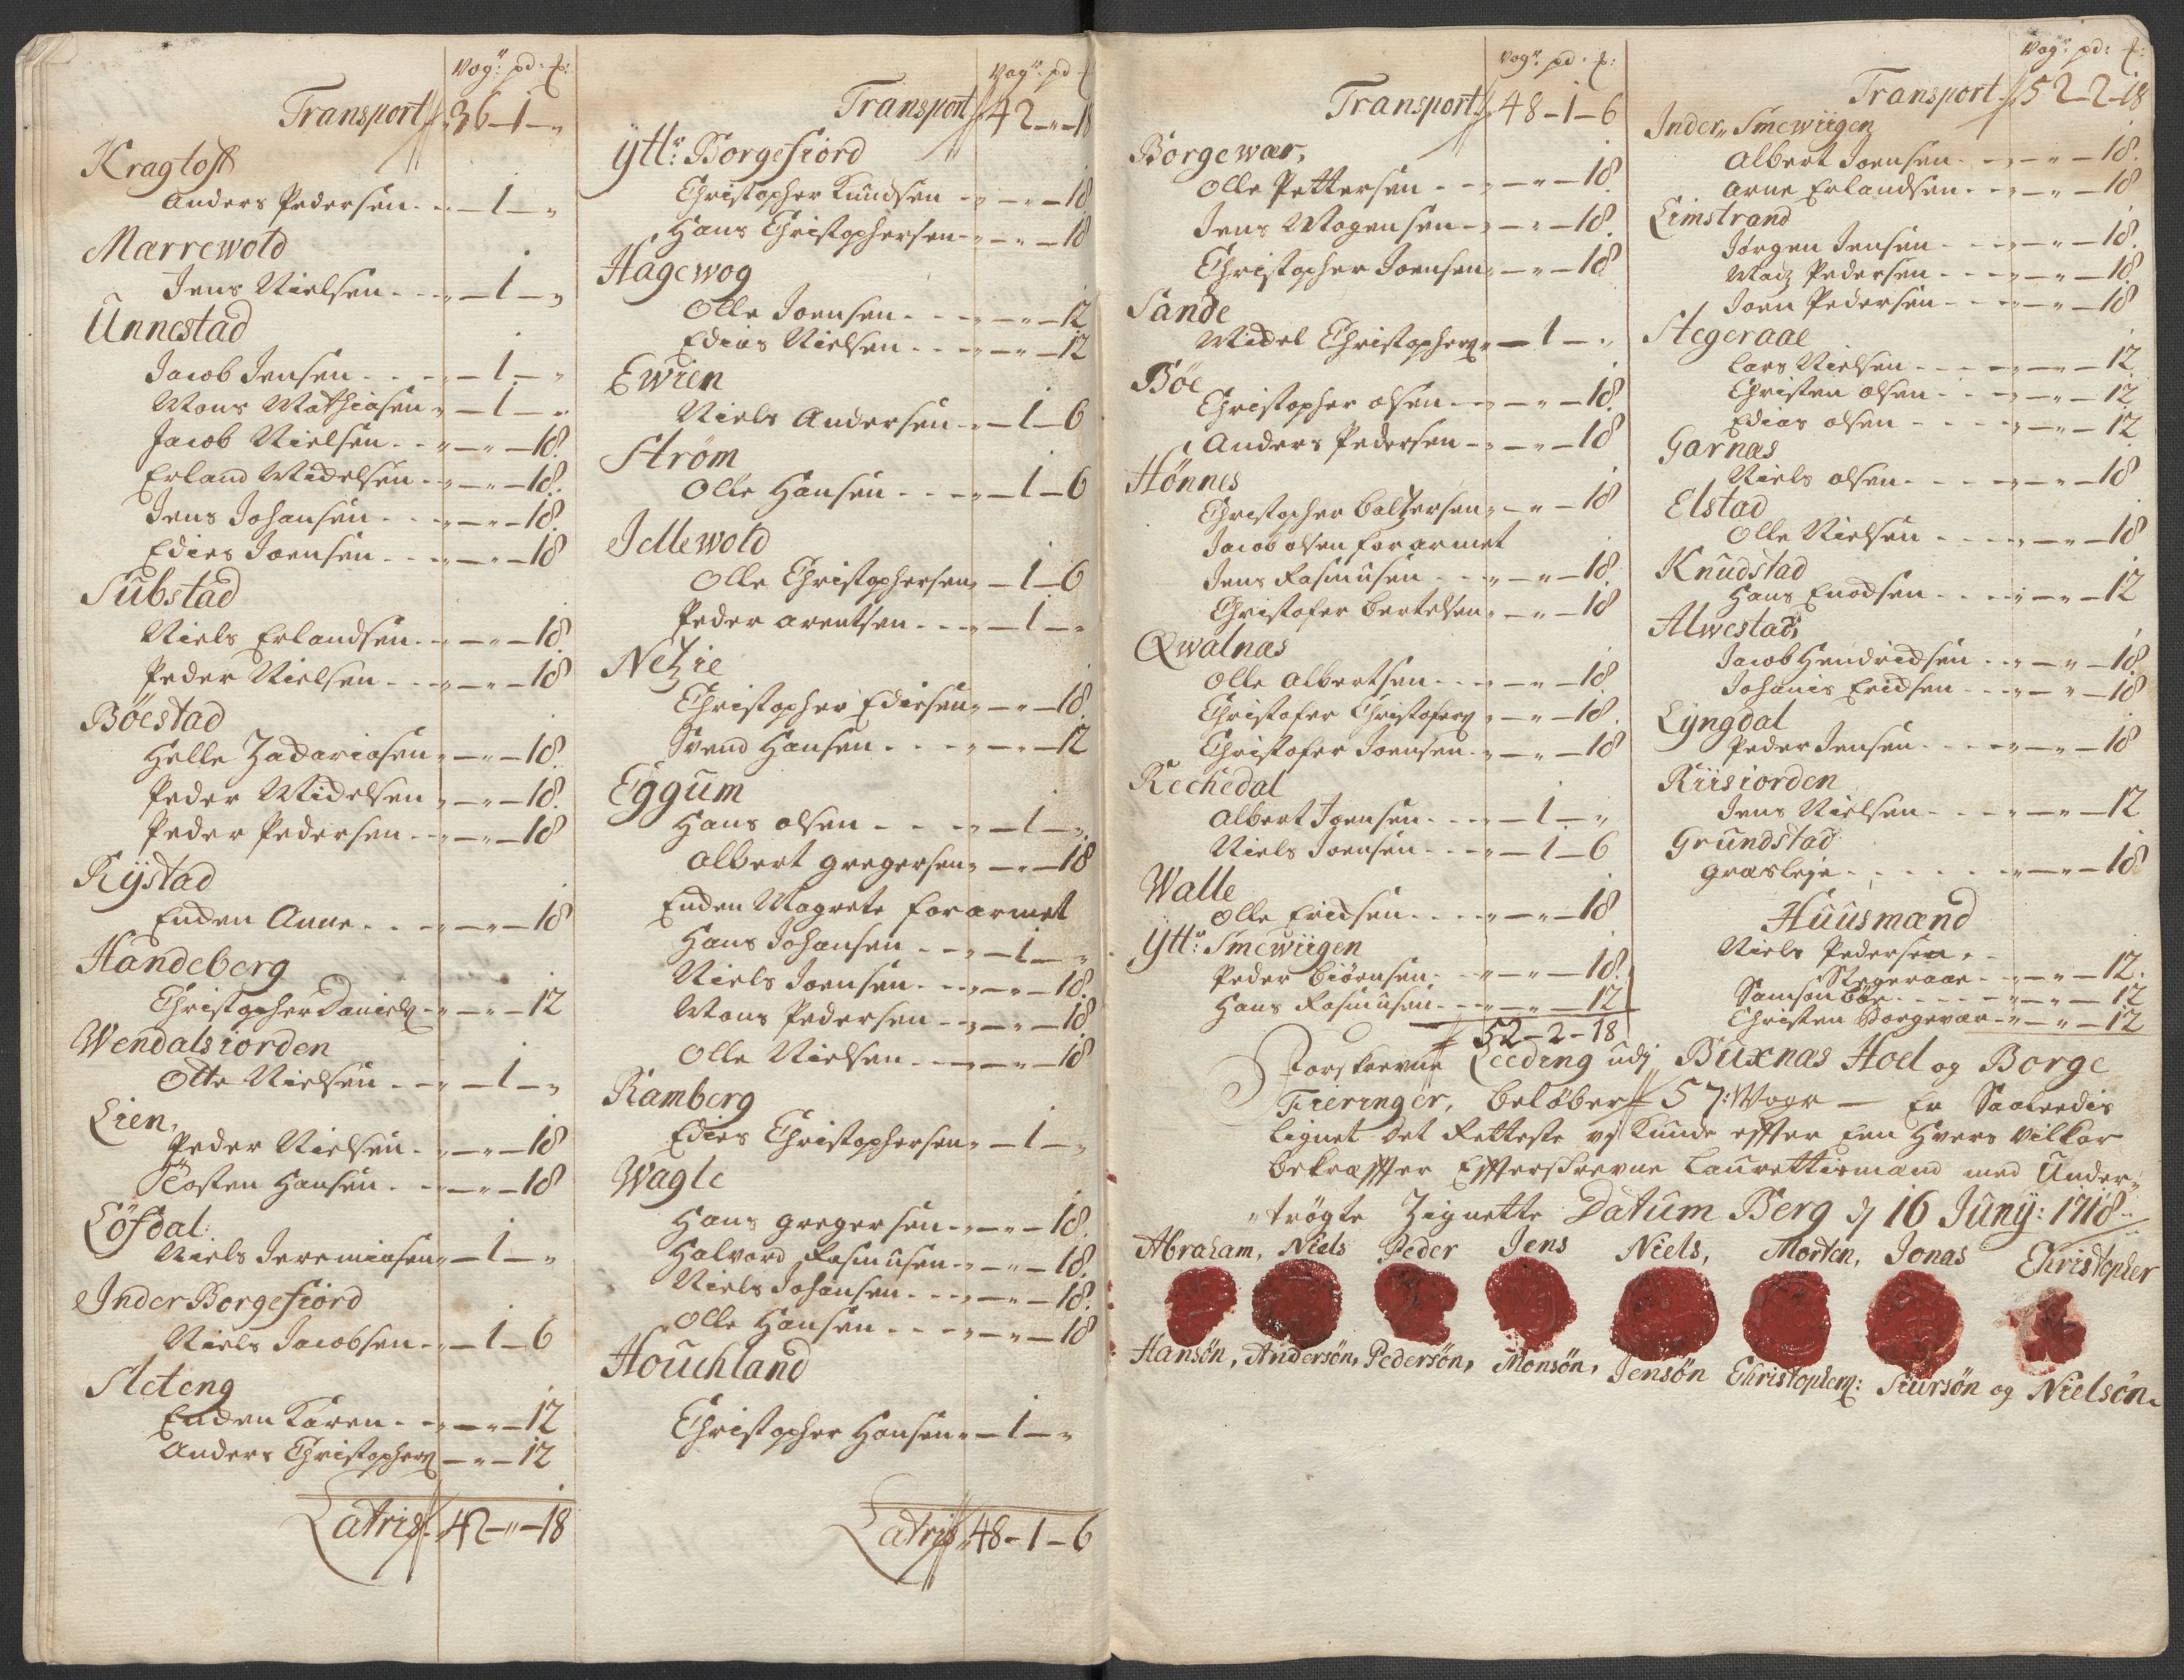 Vog: pd: £:
Transport 36-1-"
Kragtoft
Anders Pedersen - - - 1 - "
Marrewold
Jens Nielsen - - - 1 - "
Unnestad
Jacob Jensen - - - 1 - "
Mons Mathiasen - 1 - "
Jacob Nielsen - - " - 18.
Erland Michelsen - - " - 18.
Jens Johansen - - " - 18.
Edies Joensen - - " - 18
Substad
Niels Erlandsen - - " - 18.
Peder Nielsen - - " - 18
Böestad
Helle Zachariasen - " - 18.
Peder Michelsen - " - 18.
Peder Pedersen - - " - 18
Rÿstad
Enchen Anne - - " - 18
Handeberg
Christopher Daniels - " - 12
Wendalsiorden
Otte Nielsen - - 1 - "
Lien,
Peder Nielsen - - " - 18
Tosten Hansen - - " - 18
Löfdal:
Niels Jeremiasen - 1 - "
Inder Borgefiord
Niels Jacobsen - - 1 - 6
Steteng
Enchen Karen - - " - 12
Anders Christophers - " - 12
Latris 42-"-18
Vog: pd £
Transport 42-"-18
Ytt: Borgefiord
Christopher Knudsen - " - 18
Hans Christophersen - " - 18
Hagewog
Olle Joensen - - " - 12
Edias Nielsen - - " - 12
Ewien
Niels Andersen - - 1 - 6
Strøm
Olle Hansen - - - 1 - 6
Jellewold
Olle Christophersen - 1 - 6
Peder Arentsen - - 1 - "
Netzie
Christopher Ediesen - " - 18.
Svend Hansen - - " - 12
Eggum
Hans Olsen - - - 1 - "
Albert Gregersen - " - 18
Enchen Magrete forarmet
Hans Johansen - - 1 - "
Niels Joensen - - " - 18.
Mons Pedersen - - " - 18
Olle Nielsen - - " - 18
Ramberg
Edies Christophersen - 1 - "
Wagle
Hans Gregersen - - " - 18.
Halvord Rasmusen - " - 18.
Niels Johansen - - " - 18.
Olle Hansen - - " - 18
Houchland
Christopher Hansen - 1 - "
Latris 48-1-6
Vog: pd: £:
Transport 48-1-6
Borgewær,
Olle Pettersen - - " - 18.
Jens Mogensen - " - 18.
Christopher Joensen - " - 18
Sande
Michel Christophers - 1 - "
Böe
Christopher Olsen - " - 18.
Anders Pedersen - " - 18
Hønnes
Christopher Baltzersen - " - 18
Jacob Olsen forarmet
Jens Rasmusen - - " - 18.
Christofer Bertelsen - " - 18
Qwalnas
Olle Albertsen - - " - 18.
Christofer Christofers - " - 18.
Christofer Joensen - " - 18
Rechedal
Albert Joensen - - 1 - "
Niels Joensen - - 1 - 6
Walle
Olle Erichsen - - " - 18
Ytt: Smewiigen
Peder Biörnsen - " - 18.
Hans Rasmusen - " - 12
52-2-18
Vog: pd: £:
Transport 52-2-18
Inder Smewiigen
Albert Joensen - - " - 18.
Arne Erlandsen - - " - 18
Limstrand
Jörgen Jensen - - " - 18.
Madz Pedersen - - " - 18.
Joen Pedersen - - " - 18
Stegeraae
Lars Nielsen - - " - 12
Christen Olsen - - " - 12
Edias Olsen - - " - 12
Garnas
Niels Olsen - - " - 18
Elstad
Olle Nielsen - - " - 18
Knudstad
Hans Enodsen - - " - 12
Alwestad,
Jacob Hendrichsen - " - 18
Johanis Erichsen - " - 18
Lyngdal
Peder Jensen - - " - 18
Riisiorden
Jens Nielsen - - " - 12
Grundstad
græsleje - - - " - 18
Huusmænd
Niels Pedersen -
Stegeraae - - " - 12.
Samson Böe - - " - 12
Christen Borgevær - " - 12
Forskrevne Leeding udj Buxnas Hoel og Borge
Fieringer, beløber 57: Woge — Er Saaleedis
lignet det Retteste vj kunde effter Een Hvers vilkor
bekræffter Effterskrevne Laurettismænd med Under
trögte Zignette Datum Berg d 16 Junÿ: 1718
Abraham, Niels Peder Jens Niels, Morten, Jonas Christopher
Hansøn, Andersøn, Pedersøn, Monsøn, Jensøn Christophers: Siursøn og Nielsøn.